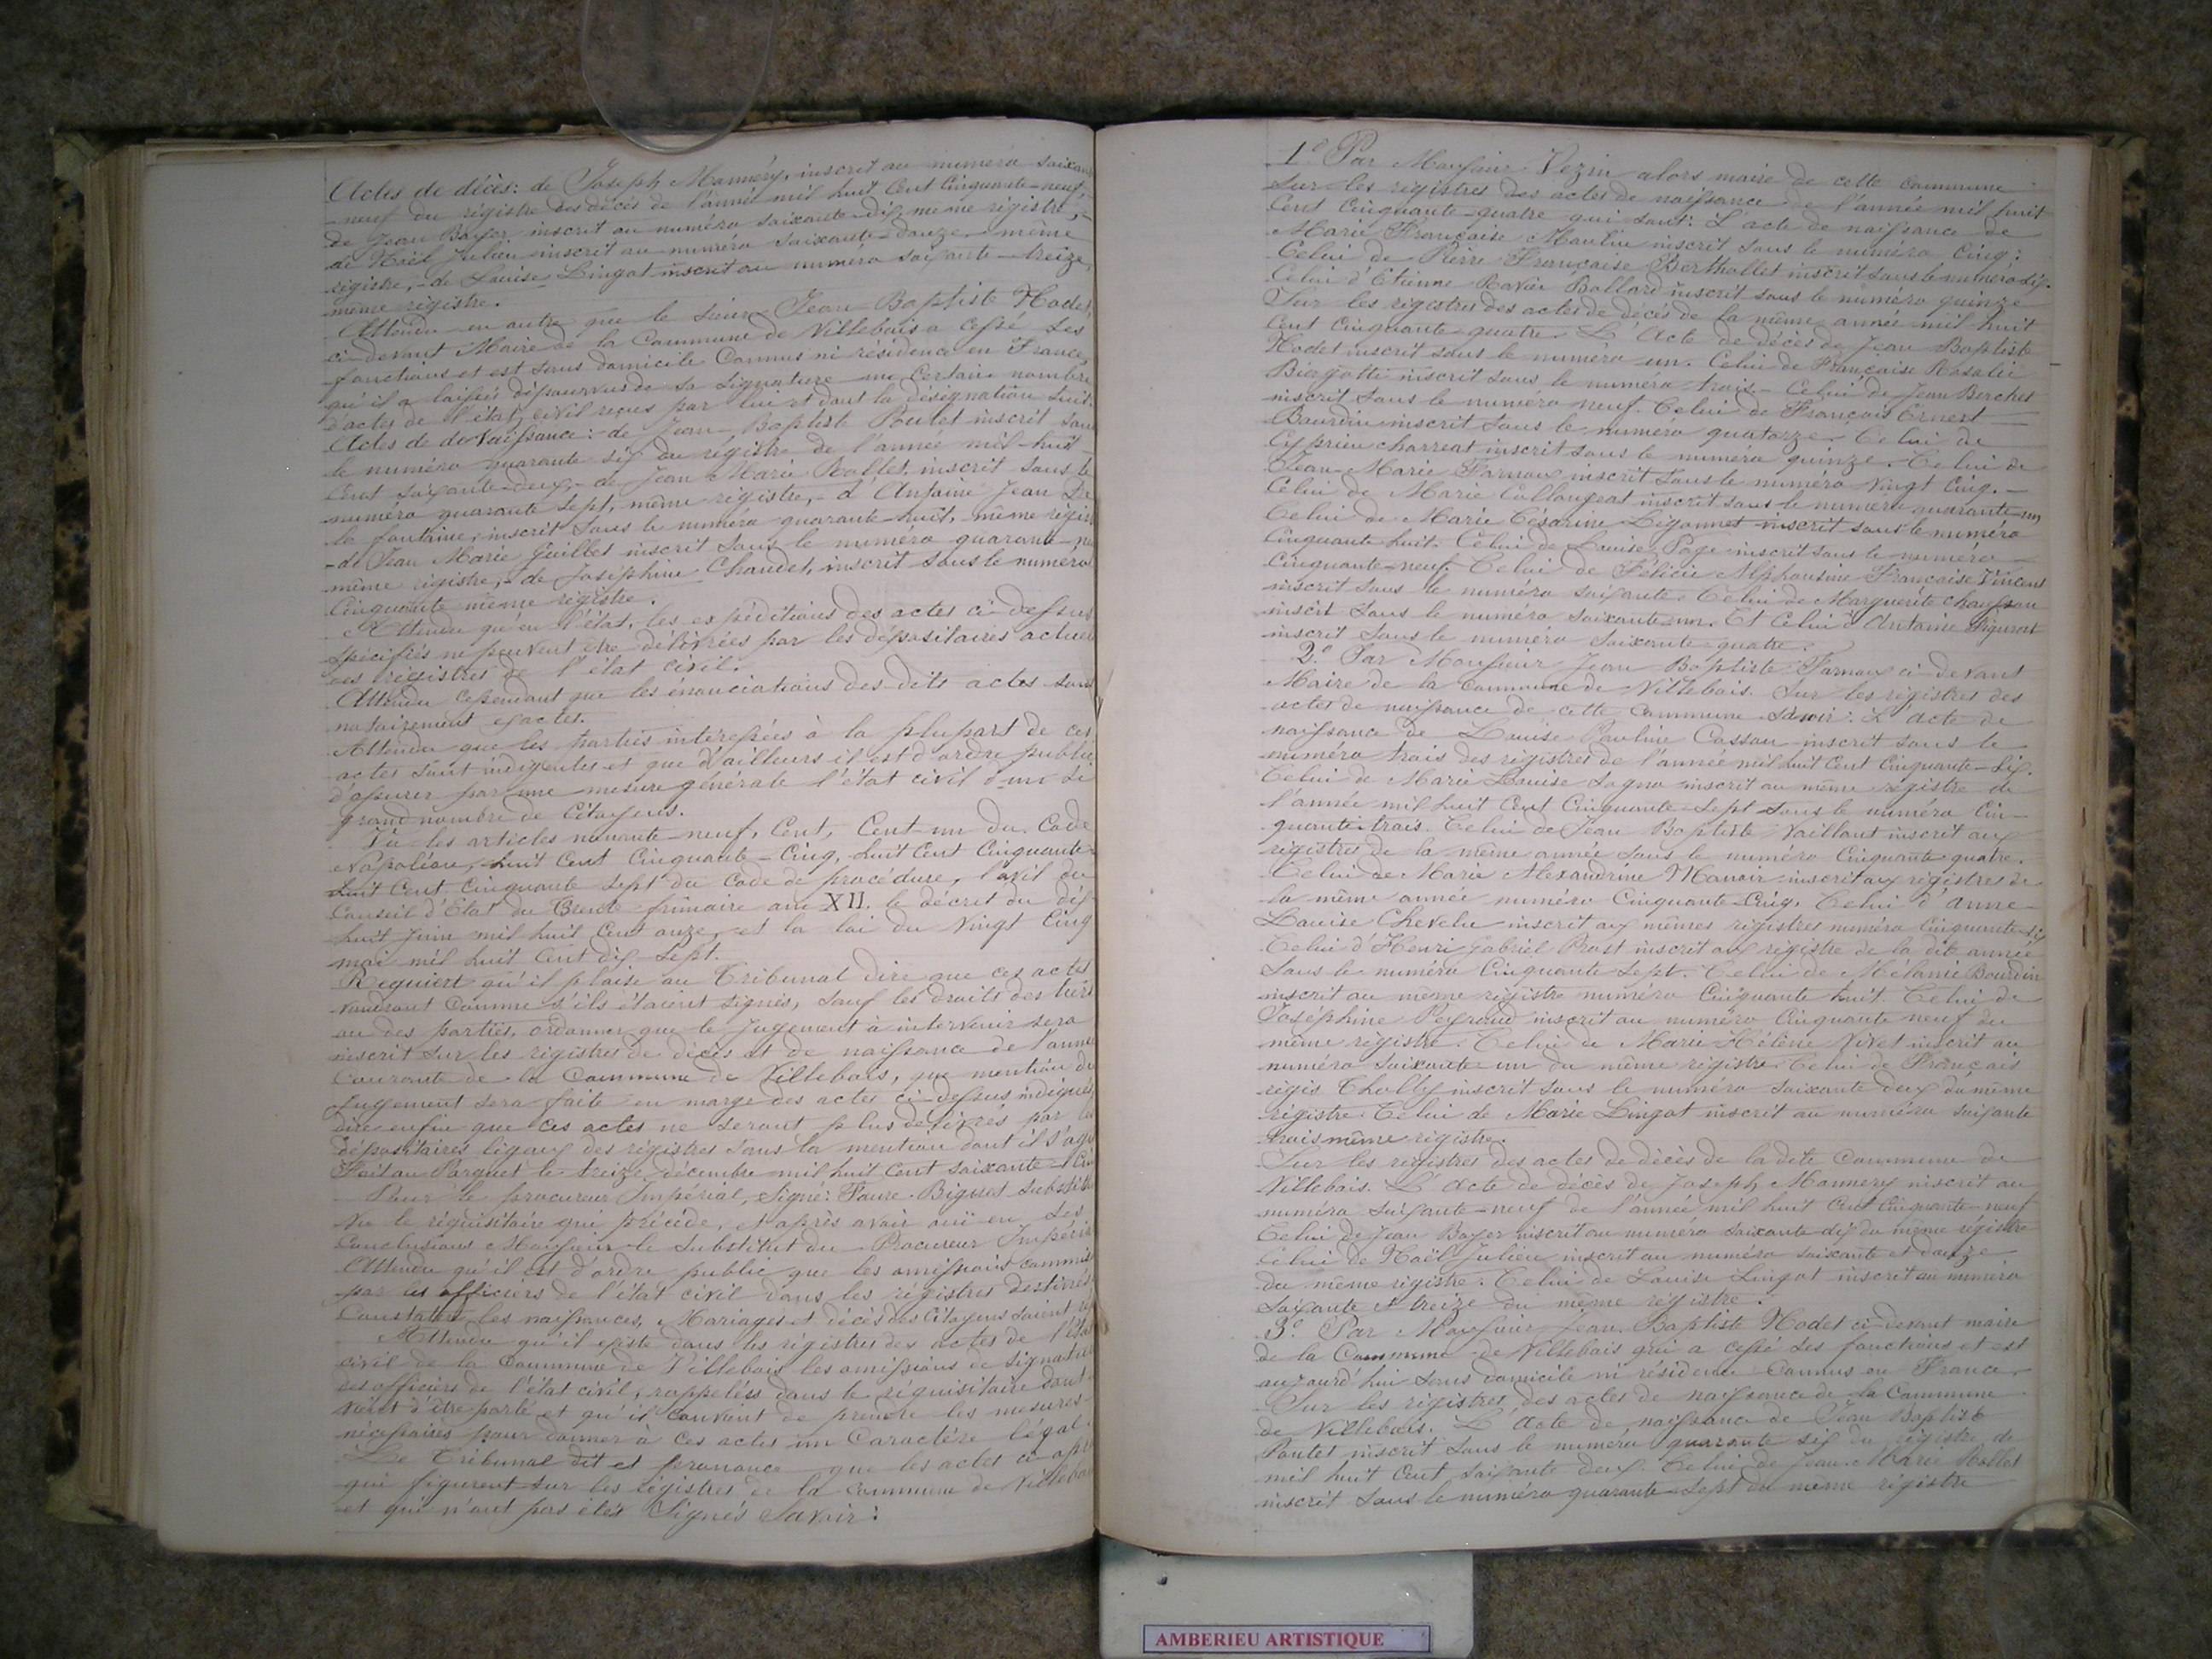 Actes de décès: de Joseph Mannery, inscrit au numéro soixante
-neuf du régistre des décès de l'année mil huit Cent Cinquante-neuf,
de Jean Boyer inscrit au numéro soixante-dix, même régistre,
de Noël Julien inscrit au numéro soixante-douze même
régistre, - de Louise Lingot inscrit au numéro soixante-treize,
même régistre.
Attendu en outre que le sieur Jean-Baptiste Hodet,
ci-devant Maire de la Commune de Villebois a cessé ses
fonctions et est sans domicile Connus ni résidence en France,
qu'il a laissés dépourvus de sa signature un Certain nombre
d'actes de l'état civil reçus par lui et dont la désignation suit:
Actes de de Naissance: de Jean-Baptiste Poulet inscrit sous
le numéro quarante six du régistre de l'année mil-huit
Cent soixante-deux, - de Jean Marie Rollet, inscrit sous le
numéro quarante sept, même régistre, - d'Antoine Jean De
la fontaine, inscrit sous le numéro quarante-huit, même régis
- de Jean Marie Guillet inscrit sous le numéro quarante-
même régistre, - de Joséphine Chaudet, inscrit sous le numéro
Cinquante même régistre.
Attendu qu'en l'état, les expéditions des actes ci-dessus
spécifiés ne peuvent être délivrées par les dépositaires actuels
des régistres de l'état civil.
Attendu cependant que les énonciations des-dits actes sont
notoirement exactes.
Attendu que les parties intéressées à la plupart de ces
actes sont indigentes et que d'ailleurs il est d'ordre public
d'assurer par une mesure générale l'état civil d'un si
grand nombre de Citoyens.
Vu les articles nonante-neuf, Cent, Cent-un du Code
Napoléon, huit Cent Cinquante-Cinq, huit Cent Cinquante-
huit Cent Cinquante sept du Code de procédure, l'avis du
Conseil d'Etat du Trente frimaire an XII. le décret du dix-
huit Juin mil huit Cent onze, et la loi du Vingt Cinq
mai mil huit Cent dix sept.
Requiert qu'il plaise au Tribunal dire que ces actes
vaudront comme s'ils étaient signés, sauf les droits des tiers
ou des parties, ordonner que le Jugement à intervenir sera
inscrit sur les régistres de décès et de naissance de l'année
Courante de la Commune de Villebois, que mention du
Jugement sera faite en marge des actes ci-dessus indiqués,
dire enfin que ces actes ne seront plus délivrés par les
dépositaires légaux des régistres sans la mention dont il s'agit
Fait au Parquet le treize décembre mil huit Cent soixante-
Pour le procureur Impérial, Signé: Faure-Biguet Substitut
Vu le réquisitoire qui précède, et après avoir ouï en ses
Conclusions Monsieur le Substitut du Procureur Impérial
Attendu qu'il est d'ordre public que les omissions commises
par les officiers de l'état civil dans les régistres destinés
Constater les naissances, Mariages et décès des Citoyens soient
Attendu qu'il existe dans les régistres des actes de l'état
civil de la Commune de Villebois les omissions de signature
des officiers de l'état civil, rappelées dans le réquisitoire dont
vient d'être parlé et qu'il convient de prendre les mesures
nécessaires pour donner à ces actes un Caractère légal.
Le Tribunal dit et prononce que les actes ci-après
qui figurent sur les régistres de la Commune de Villebois
et qui n'ont pas étés Signés Savoir:
1° Par Monsieur Vezin alors maire de cette Commune
Sur les régistres des actes de naissance de l'année mil huit
Cent Cinquante-quatre qui sont: L'acte de naissance de
Marie Françoise Moulin inscrit sous le numéro Cinq:
Celui de Pierre Françoise Berthollet inscrit sous le numéro Six.
Celui d'Etienne Xavier Ballard inscrit sous le numéro quinze
Sur les régistres des actes de décès de la même année mil huit
Cent Cinquante-quatre. L'Acte de décès de Jean Baptiste
Hodet inscrit sous le numéro un. Celui de Françoise Rosalie
inscrit sous le numéro trois - Celui de Jean Berchet
inscrit sous le numéro neuf. Celui de François Ernest
Bourdin inscrit sous le numéro quatorze. Celui de
Cyprien Charreat inscrit sous le numéro quinze. Celui de
Jean-Marie Farnoux inscrit sous le numéro Vingt Cinq. -
Celui de Marie inscrit sous le numéro quarante-un
Celui de Marie Césarine inscrit sous le numéro
Cinquante huit. Celui de Louise Page inscrit sous le numéro
Cinquante-neuf. Celui de Félicie Alphonsine Françoise Vincent
inscrit sous le numéro soixante. Celui de Marguerite
inscrit sous le numéro soixante-un. Et Celui d'Antoine Figurat
inscrit sous le numéro soixante-quatre.
2° Par Monsieur Jean Baptiste Farnoux ci-devant
Maire de la Commune de Villebois. Sur les régistres des
actes de naissance de cette Commune Savoir: L'acte de
naissance de Louise Pauline Cassau inscrit sous le
numéro trois des régistres de l'année mil huit Cent Cinquante-Six.
Celui de Marie Louise inscrit au même régistre de
l'année mil huit Cent Cinquante-Sept sous le numéro Cin-
quante-trois. Celui de Jean Baptiste Vaillant inscrit aux
régistres de la même année sous le numéro Cinquante quatre.
Celui de Marie Alexandrine Manoir inscrit aux régistres de
la même année numéro Cinquante-Cinq. Celui d'Anne
Louise Chevelu inscrit aux mêmes régistres numéro Cinquante-Six
Celui d'Henri Gabriel Prost inscrit au régistre de la dite année
sous le numéro Cinquante Sept. Celui de Mélanie Bourdin
inscrit au même régistre numéro Cinquante huit. Celui de
Joséphine Peyroud inscrit au numéro Cinquante neuf du
même régistre. Celui de Marie Hélène Vivet inscrit au
numéro soixante un du même régistre. Celui de François
régis Tholly inscrit sous le numéro soixante deux du même
régistre. Celui de Marie Lingot inscrit au numéro soixante
trois même régistre.
Sur les régistres des actes de décès de la dite Commune de
Villebois. L'acte de décès de Joseph Mannery inscrit au
numéro soixante-neuf de l'année mil huit Cent Cinquante-neuf
Celui de Jean Boyer inscrit au numéro soixante-dix du même régistre
Celui de Noël Julien inscrit au numéro soixante et douze
du même régistre. Celui de Louise Lingot inscrit au numéro
soixante et treize du même régistre.
3° Par Monsieur Jean Baptiste Hodet ci-devant maire
de la Commune de Villebois qui a cessé ses fonctions et est
aujourd'hui sans domicile ni résidence Connus en France.
Sur les régistres des actes de naissance de la Commune
de Villebois. L'Acte de naissance de Jean Baptiste
Poulet inscrit sous le numéro quarante six du régistre de
mil huit Cent soixante deux. Celui de Jean-Marie Rollet
inscrit sous le numéro quarante-Sept du même régistre
AMBERIEU ARTISTIQUE